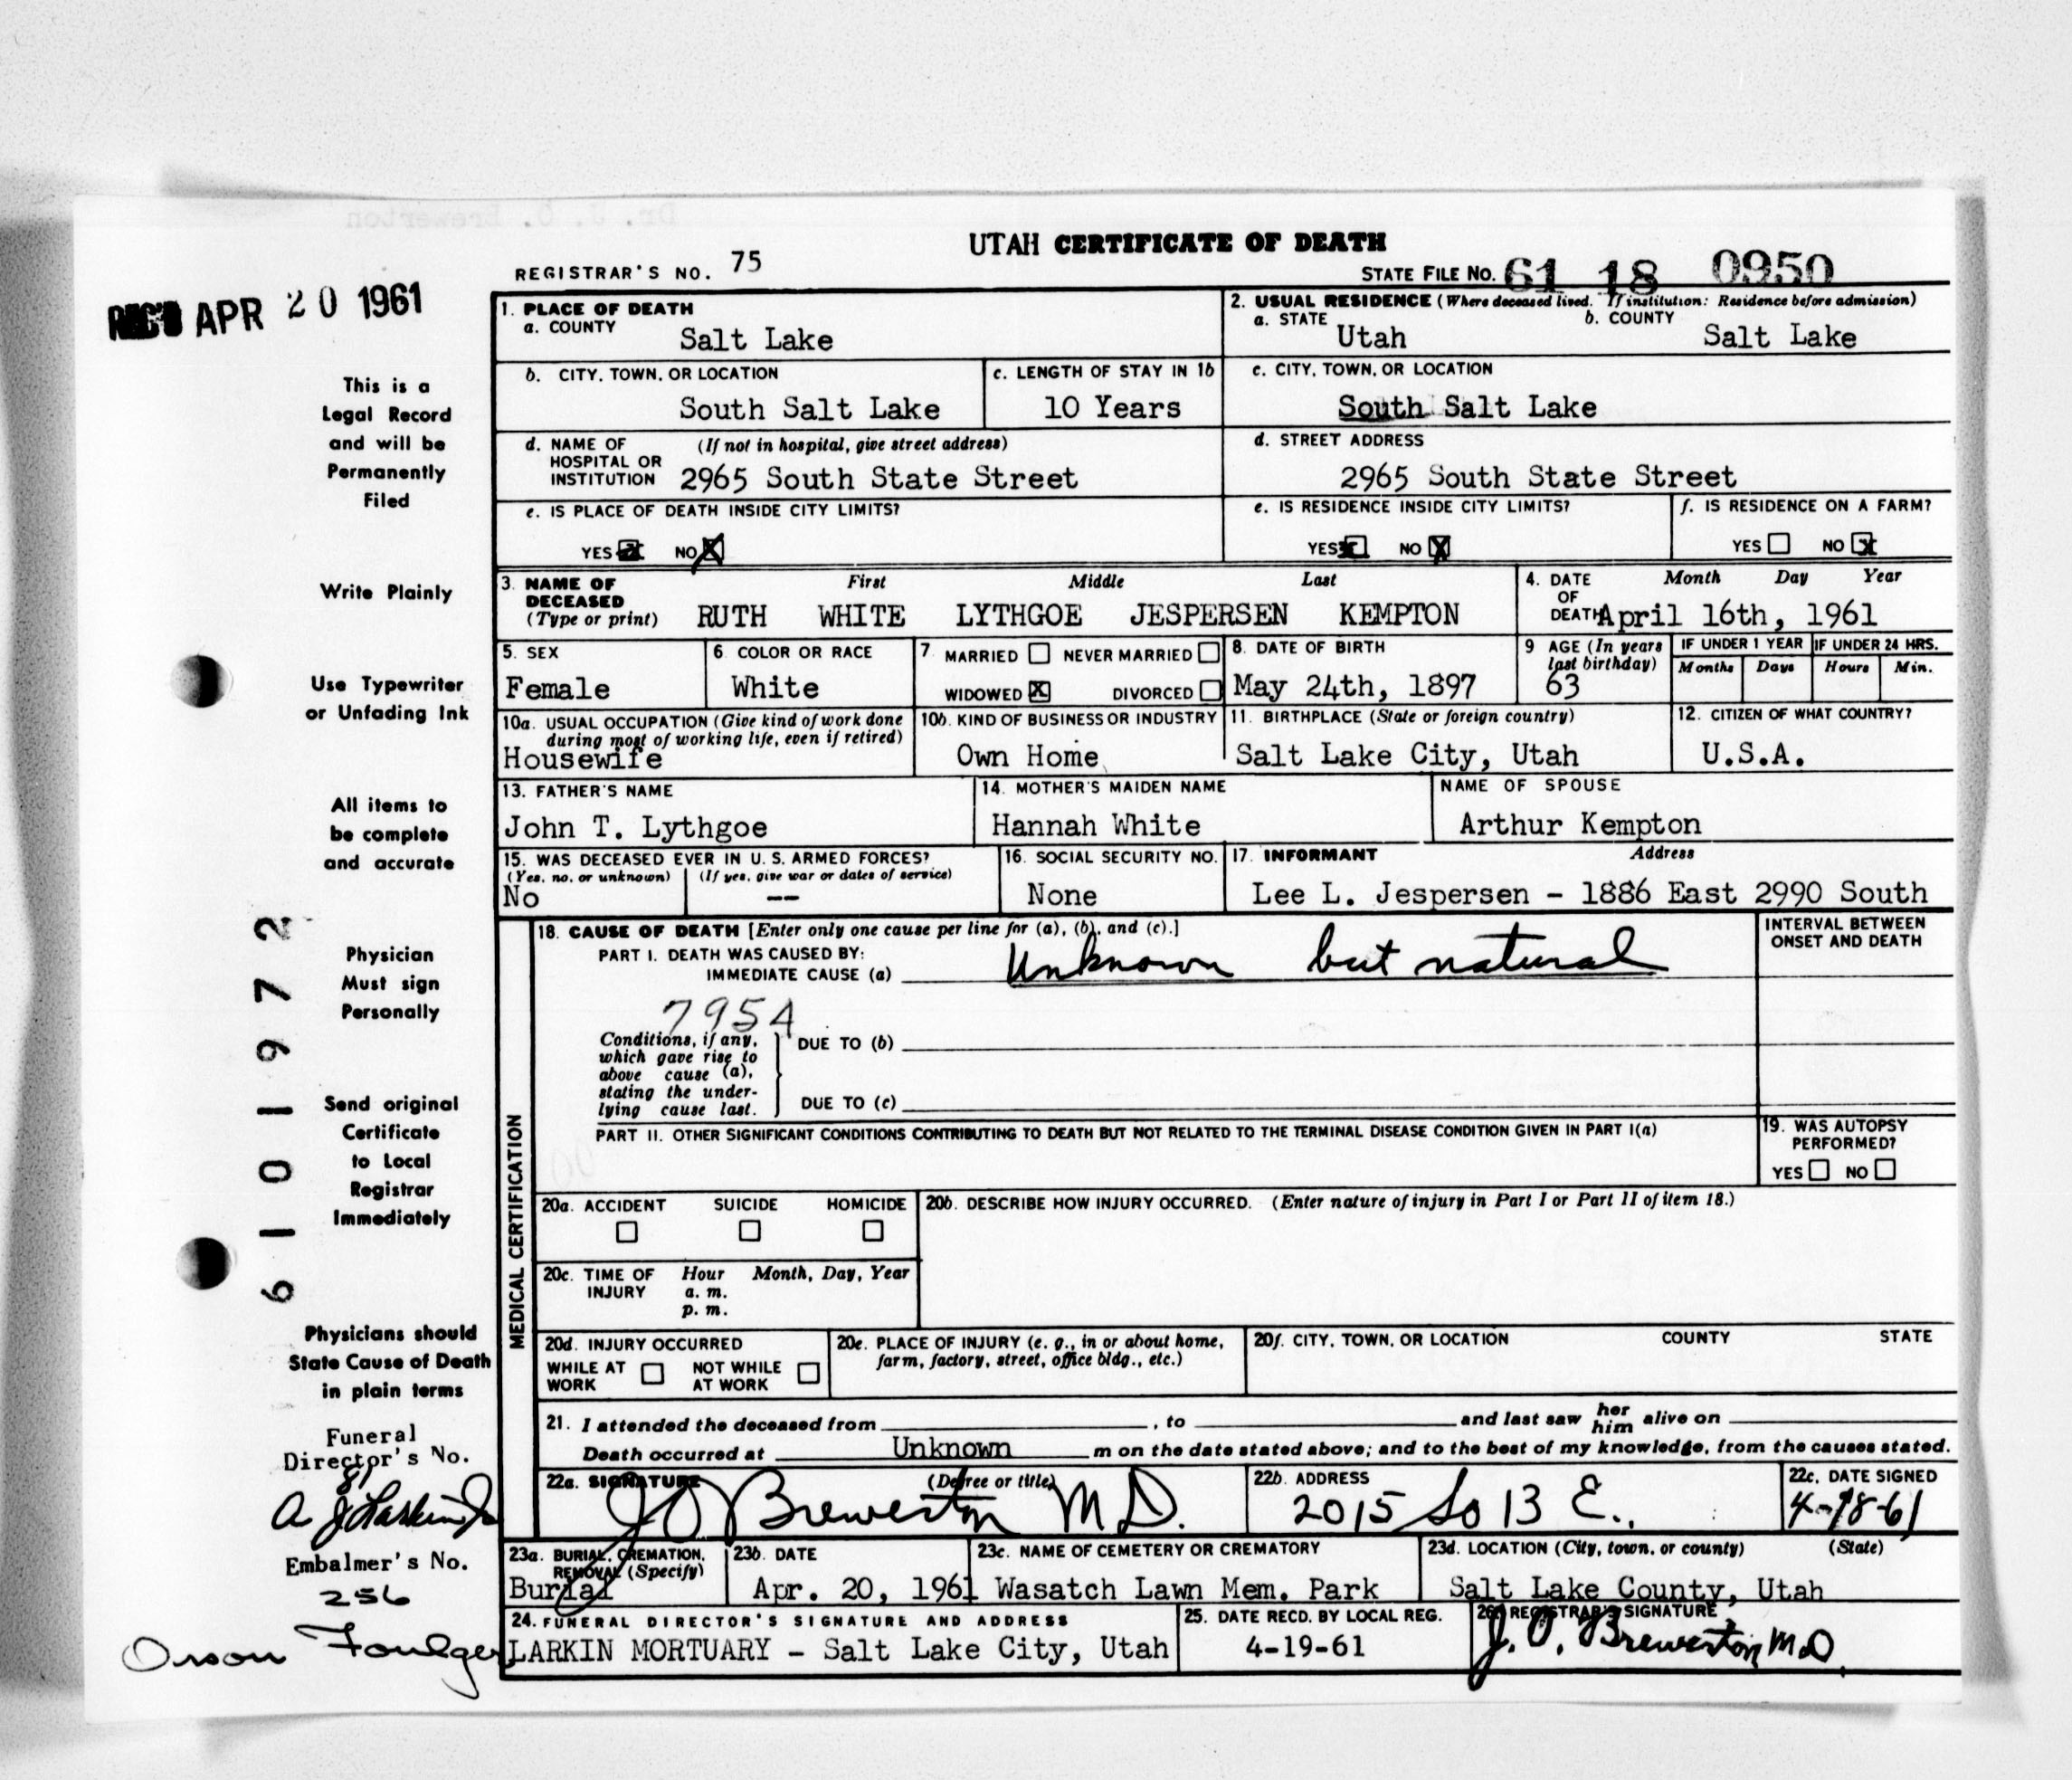 UTAH CERTIFICATE OF DEATH
REGISTRAR'S NO. 75
STATE FILE No. 61 18 0950
REC'D APR 20 1961
This is a
Legal Record
and will be
Permanently
Filed
Write Plainly
Use Typewriter
or Unfading Ink
All items to
be complete
and accurate
Physician
Must sign
Personally
Send original
Certificate
to Local
Registrar
Immediately
Physicians should
State Cause of Death
in plain terms
Funeral
Director's No.
81
A J Larkin Jr
Embalmer's No.
256
Orson Foulger
6101972
1. PLACE OF DEATH
a. COUNTY
Salt Lake
2. USUAL RESIDENCE (Where deceased lived. If institution: Residence before admission)
a. STATE b. COUNTY
Utah Salt Lake
b. CITY, TOWN, OR LOCATION
South Salt Lake
c. LENGTH OF STAY IN 1b
10 Years
c. CITY, TOWN, OR LOCATION
South Salt Lake
d. NAME OF (If not in hospital, give street address)
HOSPITAL OR
INSTITUTION 2965 South State Street
d. STREET ADDRESS
2965 South State Street
e. IS PLACE OF DEATH INSIDE CITY LIMITS?
YES NO X
e. IS RESIDENCE INSIDE CITY LIMITS?
YES NO X
f. IS RESIDENCE ON A FARM?
YES NO X
3. NAME OF First Middle Last
DECEASED
(Type or print) RUTH WHITE LYTHGOE JESPERSEN KEMPTON
4. DATE Month Day Year
OF
DEATH April 16th, 1961
5. SEX
Female
6. COLOR OR RACE
White
7. MARRIED NEVER MARRIED
WIDOWED X DIVORCED
8. DATE OF BIRTH
May 24th, 1897
9 AGE (In years
last birthday)
63
IF UNDER 1 YEAR IF UNDER 24 HRS.
Months Days Hours Min.
10a. USUAL OCCUPATION (Give kind of work done
during most of working life, even if retired)
Housewife
10b. KIND OF BUSINESS OR INDUSTRY
Own Home
11. BIRTHPLACE (State or foreign country)
Salt Lake City, Utah
12. CITIZEN OF WHAT COUNTRY?
U.S.A.
13. FATHER'S NAME
John T. Lythgoe
14. MOTHER'S MAIDEN NAME
Hannah White
NAME OF SPOUSE
Arthur Kempton
15. WAS DECEASED EVER IN U. S. ARMED FORCES?
(Yes, no, or unknown) (If yes, give war or dates of service)
No --
16. SOCIAL SECURITY NO.
None
17. INFORMANT Address
Lee L. Jespersen - 1886 East 2990 South
MEDICAL CERTIFICATION
18. CAUSE OF DEATH [Enter only one cause per line for (a), (b), and (c).]
PART I. DEATH WAS CAUSED BY:
IMMEDIATE CAUSE (a) Unknown but natural
INTERVAL BETWEEN
ONSET AND DEATH
7954
Conditions, if any,
which gave rise to
above cause (a),
stating the under-
lying cause last.
DUE TO (b)
DUE TO (c)
PART II. OTHER SIGNIFICANT CONDITIONS CONTRIBUTING TO DEATH BUT NOT RELATED TO THE TERMINAL DISEASE CONDITION GIVEN IN PART I(a)
19. WAS AUTOPSY
PERFORMED?
YES NO
20a. ACCIDENT SUICIDE HOMICIDE
20b. DESCRIBE HOW INJURY OCCURRED. (Enter nature of injury in Part I or Part II of item 18.)
20c. TIME OF Hour Month, Day, Year
INJURY a. m.
p. m.
20d. INJURY OCCURRED
WHILE AT NOT WHILE
WORK AT WORK
20e. PLACE OF INJURY (e. g., in or about home,
farm, factory, street, office bldg., etc.)
20f. CITY, TOWN, OR LOCATION COUNTY STATE
21. I attended the deceased from , to and last saw her him alive on
Death occurred at Unknown m on the date stated above; and to the best of my knowledge, from the causes stated.
22a. SIGNATURE (Degree or title)
J O Brewerton M D.
22b. ADDRESS
2015 So 13 E.
22c. DATE SIGNED
4-18-61
23a. BURIAL, CREMATION,
REMOVAL (Specify)
Burial
23b. DATE
Apr. 20, 1961
23c. NAME OF CEMETERY OR CREMATORY
Wasatch Lawn Mem. Park
23d. LOCATION (City, town, or county) (State)
Salt Lake County, Utah
24. FUNERAL DIRECTOR'S SIGNATURE AND ADDRESS
LARKIN MORTUARY - Salt Lake City, Utah
25. DATE RECD. BY LOCAL REG.
4-19-61
26. REGISTRAR'S SIGNATURE
J. O. Brewerton M D